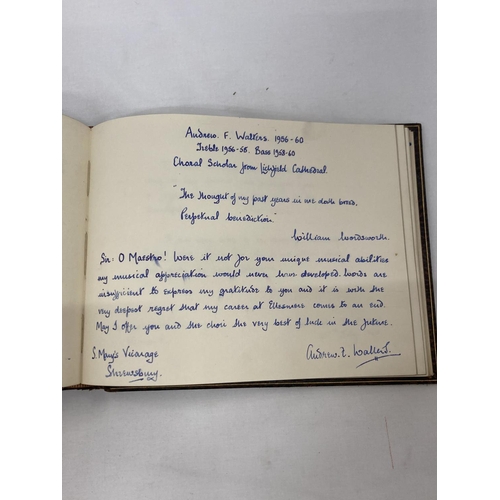 Andrew. F. Walters. 1956-60
Treble 1956-58. Bass 1958-60
Choral Scholar from Lichfield Cathedral.
"The thought of my past years in me doth breed,
Perpetual benediction"
William Wordsworth.
Sir: O Maestro! Were it not for your unique musical abilities
my musical appreciation would never have developed. Words are
insufficient to express my gratitude to you and it is with the
very deepest regret that my career at Ellesmere comes to an end.
May I offer you and the choir the very best of luck in the future.
S. Mary's Vicarage
Shrewsbury.
Andrew. F. Walters.